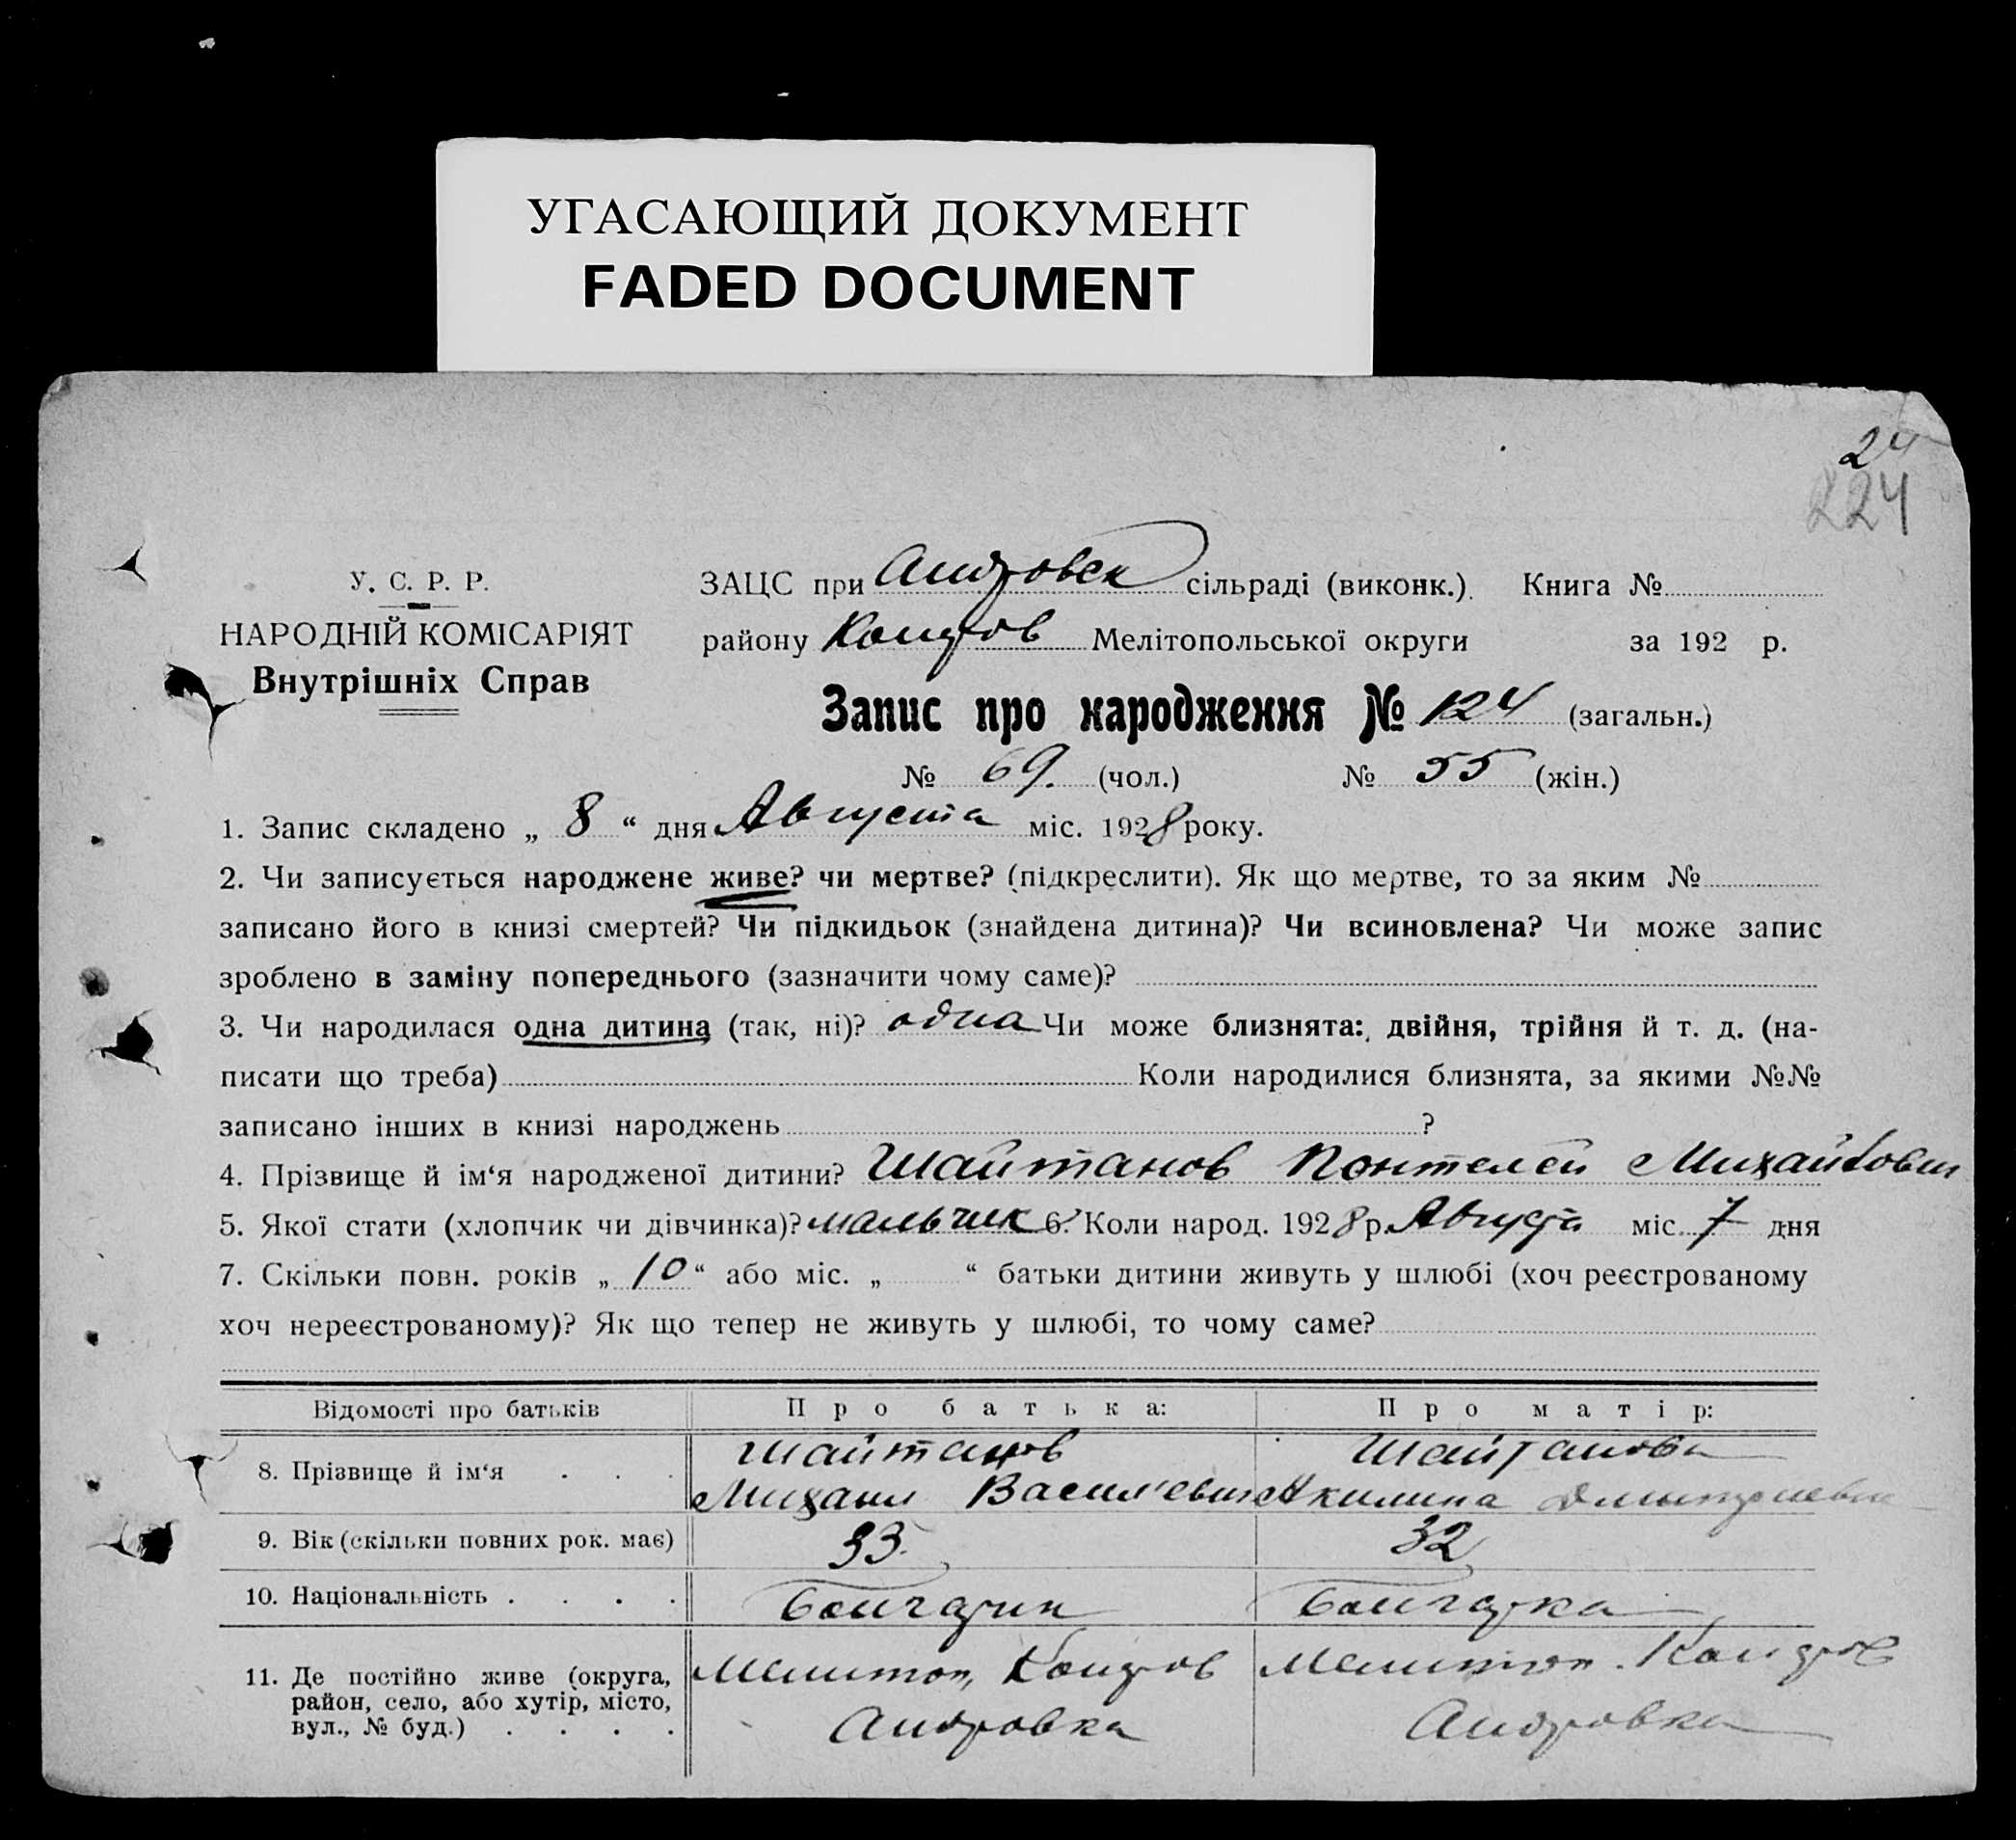 УГАСАЮЩИЙ ДОКУМЕНТ
FADED DOCUMENT
24
224
У. С. Р. Р.
НАРОДНІЙ КОМІСАРІЯТ
Внутрішніх Справ
ЗАЦС при Андровск сільраді (виконк.). Книга №
району Кондров Мелітопольської округи за 192 р.
Запис про народження № 124 (загальн.)
№ 69. (чол.) № 55 (жін.)
1. Запис складено „ 8 “ дня Августа міс. 1928 року.
2. Чи записується народжене живе? чи мертве? (підкреслити). Як що мертве, то за яким №
записано його в книзі смертей? Чи підкидьок (знайдена дитина)? Чи всиновлена? Чи може запис
зроблено в заміну попереднього (зазначити чому саме)?
3. Чи народилася одна дитина (так, ні)? одна Чи може близнята: двійня, трійня й т. д. (на-
писати що треба) Коли народилися близнята, за якими №№
записано інших в книзі народжень ?
4. Прізвище й ім‘я народженої дитини? Шайтанов Понтелей Михайлович
5. Якої стати (хлопчик чи дівчинка)? мальчик 6. Коли народ. 1928 р. Августа міс. 7 дня
7. Скільки повн. років „ 10 “ або міс. „ “ батьки дитини живуть у шлюбі (хоч реєстрованому
хоч нереєстрованому)? Як що тепер не живуть у шлюбі, то чому саме?
Відомості про батьків Про батька: Про матір:
8. Прізвище й ім‘я . . . Шайтанов Михаил Васильевич Шайтанова Акилина Дмитриевна
9. Вік (скільки повних рок. має) 33. 32
10. Національність . . . . Болгарин Болгарка
11. Де постійно живе (округа,
район, село, або хутір, місто,
вул., № буд.) . . . .
Мелитоп, Кондров
Андровка
Мелитоп. Кондров
Андровка